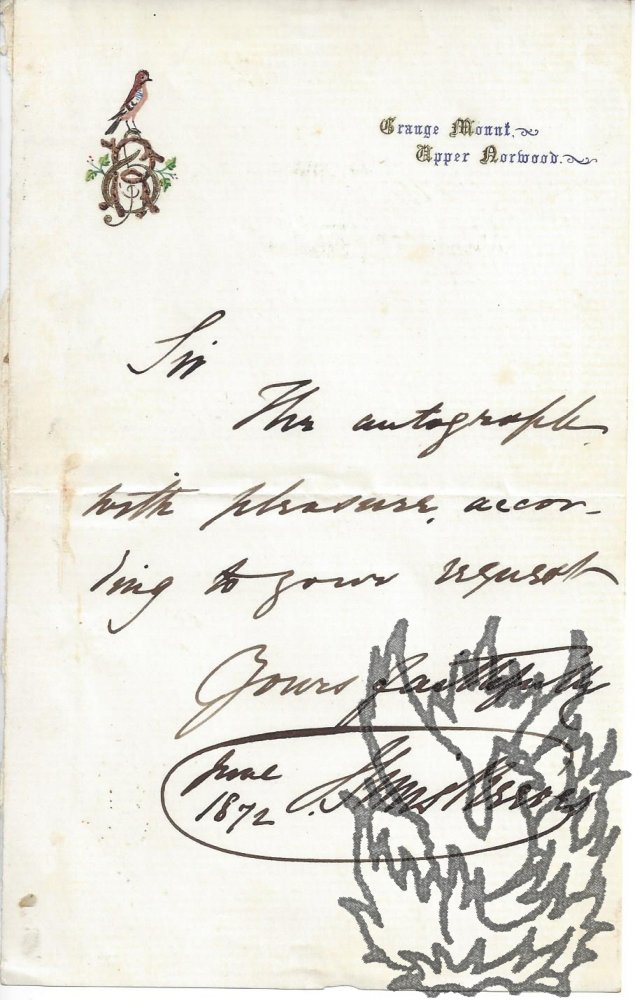 Grange Mount,
Upper Norwood.
Sir
The autograph
with pleasure, accor-
ding to your request
Yours faithfully
June J. Sims Reeves
1872